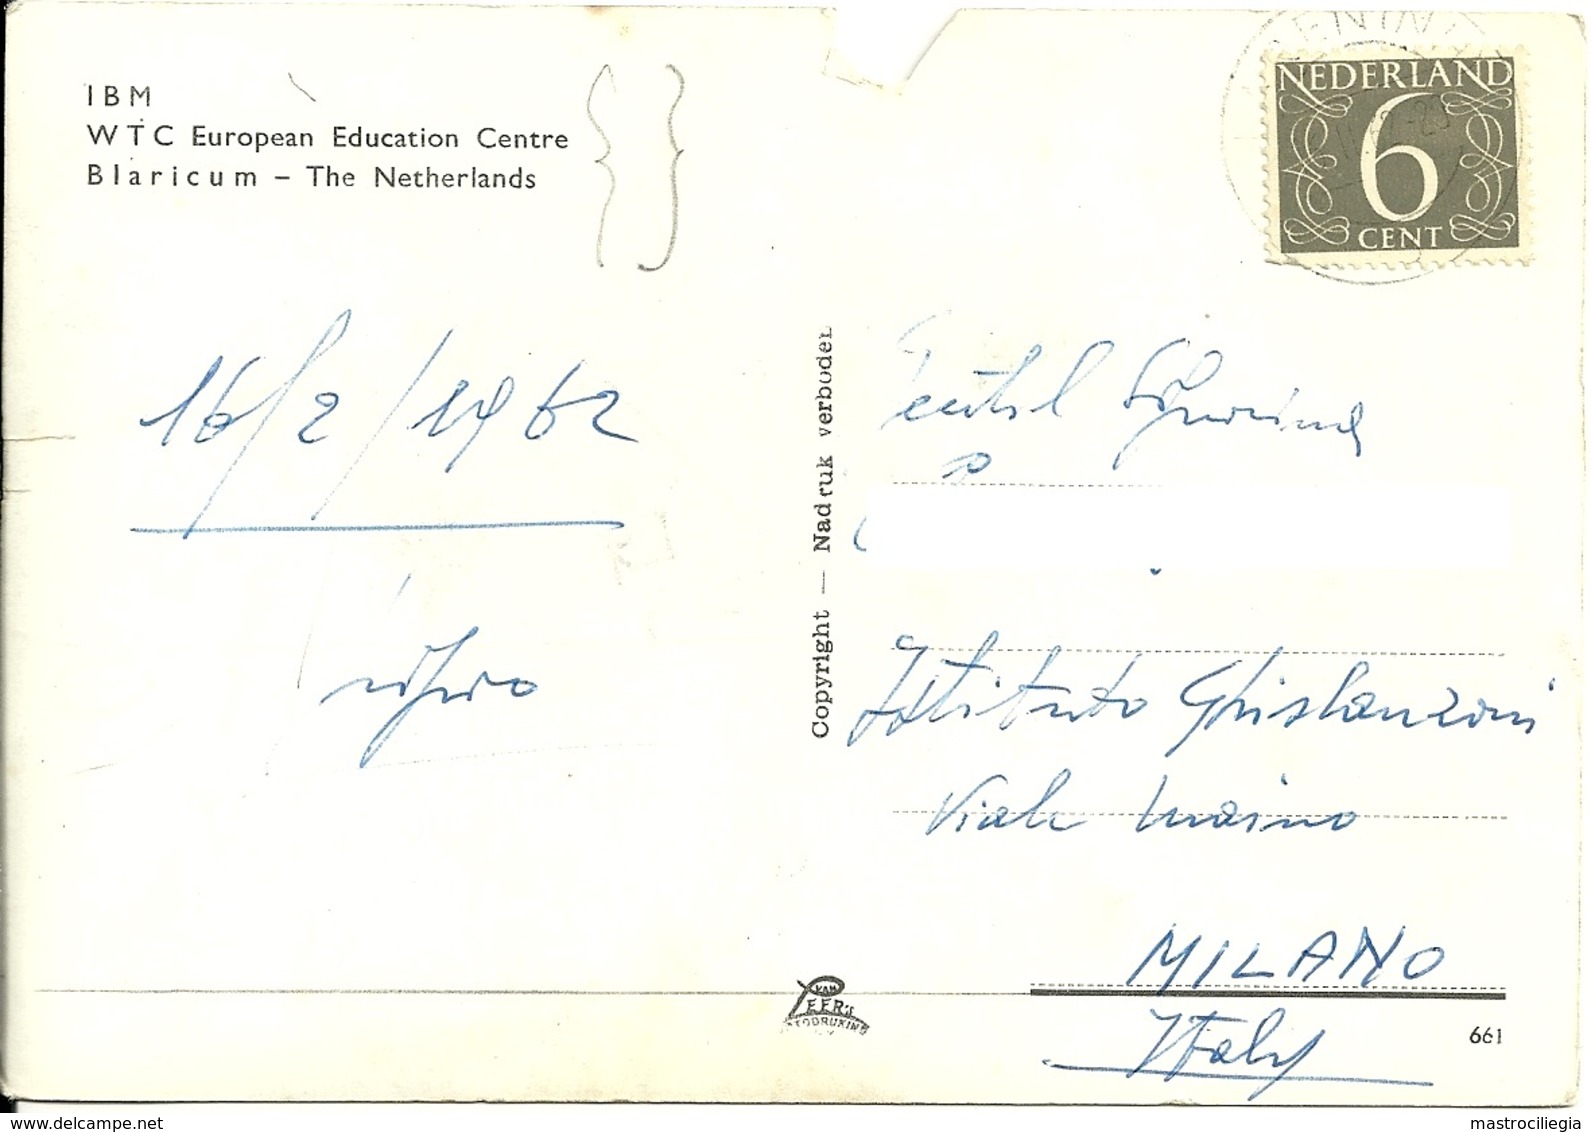 IBM
WTC European Education Centre
Blaricum – The Netherlands
NEDERLAND
6
CENT
16/2/1962
Copyright — Nadruk verboden
Gentil Signorina
Istituto Ghislanzoni
Viale Maino
MILANO
Italy
VAN
PEER's
661
www.delcampe.net
mastrociliegia